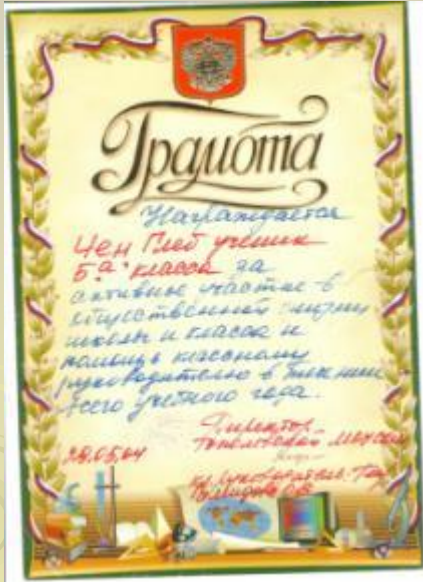 Грамота
Награждается
Чен Глеб ученик
5"а" класса за
активное участие в
общественной жизни
школы и класса и
помощь классному
руководителю в течении
всего учебного года.
Директор
28.05.04
кл. руководитель: